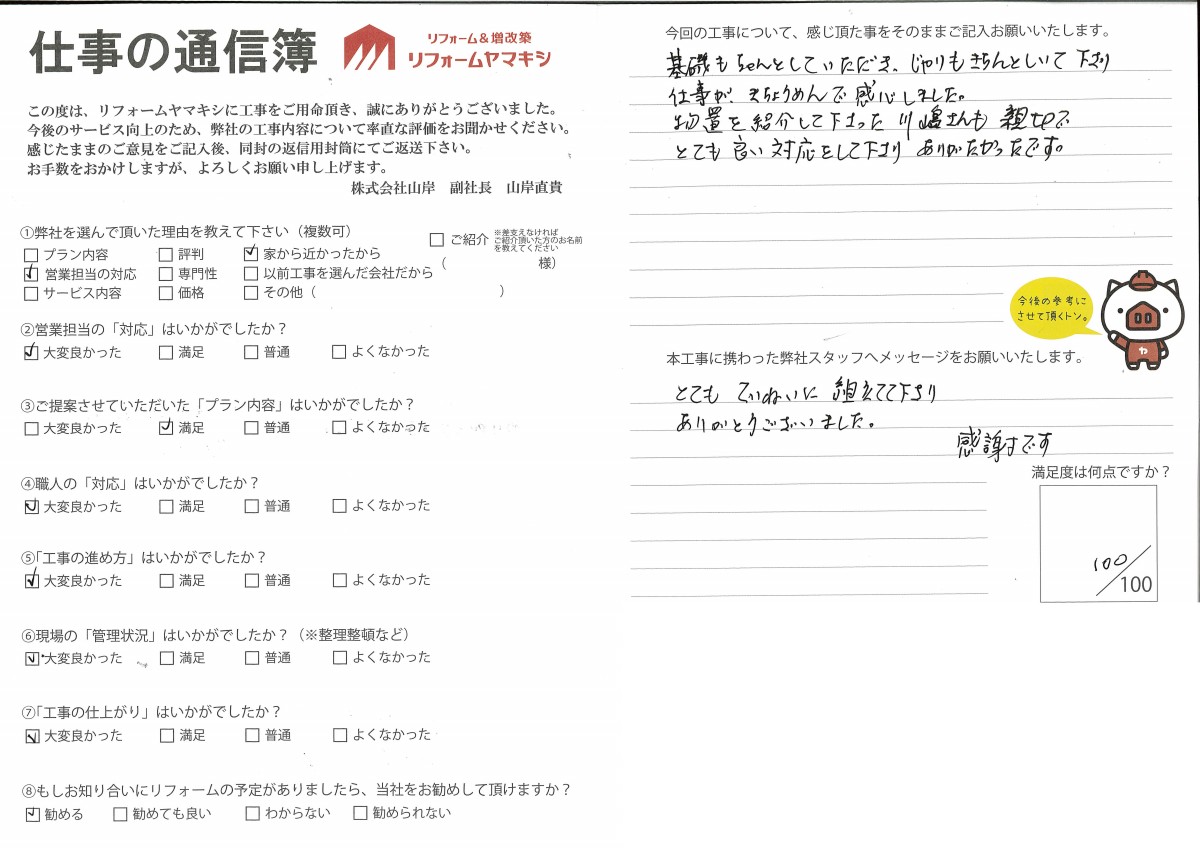 仕事の通信簿
リフォーム&増改築
リフォームヤマキシ
この度は、リフォームヤマキシに工事をご用命頂き、誠にありがとうございました。
今後のサービス向上のため、弊社の工事内容について率直な評価をお聞かせください。
感じたままのご意見をご記入後、同封の返信用封筒にてご返送下さい。
お手数をおかけしますが、よろしくお願い申し上げます。
株式会社山岸 副社長 山岸直貴
①弊社を選んで頂いた理由を教えて下さい（複数可）
□プラン内容 □評判 ☑家から近かったから
☑営業担当の対応 □専門性 □以前工事を選んだ会社だから
□サービス内容 □価格 □その他（ ）
□ご紹介 ※差支えなければ
ご紹介頂いた方のお名前
を教えてください
（ 様）
②営業担当の「対応」はいかがでしたか？
☑大変良かった □満足 □普通 □よくなかった
③ご提案させていただいた「プラン内容」はいかがでしたか？
□大変良かった ☑満足 □普通 □よくなかった
④職人の「対応」はいかがでしたか？
☑大変良かった □満足 □普通 □よくなかった
⑤「工事の進め方」はいかがでしたか？
☑大変良かった □満足 □普通 □よくなかった
⑥現場の「管理状況」はいかがでしたか？（※整理整頓など）
☑大変良かった □満足 □普通 □よくなかった
⑦「工事の仕上がり」はいかがでしたか？
☑大変良かった □満足 □普通 □よくなかった
⑧もしお知り合いにリフォームの予定がありましたら、当社をお勧めして頂けますか？
☑勧める □勧めても良い □わからない □勧められない
今回の工事について、感じ頂た事をそのままご記入お願いいたします。
基礎もちゃんとしていただき、じゃりもきちんとしいて下さり
仕事が、きちょうめんで感心しました。
物置を紹介して下さった川嶋さんも親切で
とても良い対応をして下さりありがたかったです。
今後の参考に
させて頂くトン。
ヤ
本工事に携わった弊社スタッフへメッセージをお願いいたします。
とてもていねいに組立てて下さり
ありがとうございました。
感謝です
満足度は何点ですか？
100/100